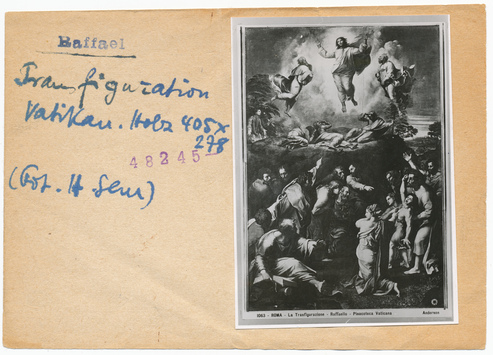 Raffael
Transfiguration
Vatikan. Holz 405x
278
48245
1003 - ROMA - La Trasfigurazione - Raffaello - Pinacoteca Vaticana
Anderson